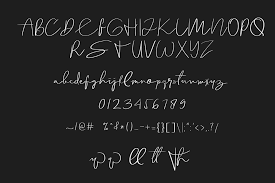 ABCDEFGHIJKLMNOPQ
RSTUVWXYZ
abcdefghijklmnopqrstuvwxyz
0123456789
ll th Th